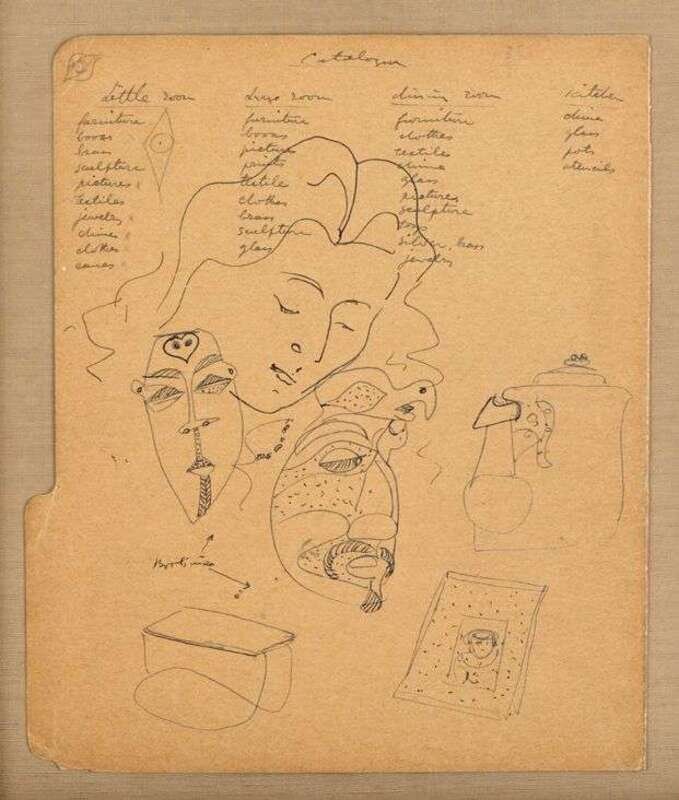 Catalogue
Little room
furniture
books
brass
sculpture
pictures
textiles
jewelry
china
clothes
canes
Large room
furniture
books
pictures
prints
textile
clothes
brass
sculpture
glass
dining room
furniture
clothes
textiles
china
glass
pictures
sculpture
toys
silver, brass
jewelry
Kitchen
china
glass
pots
utensils